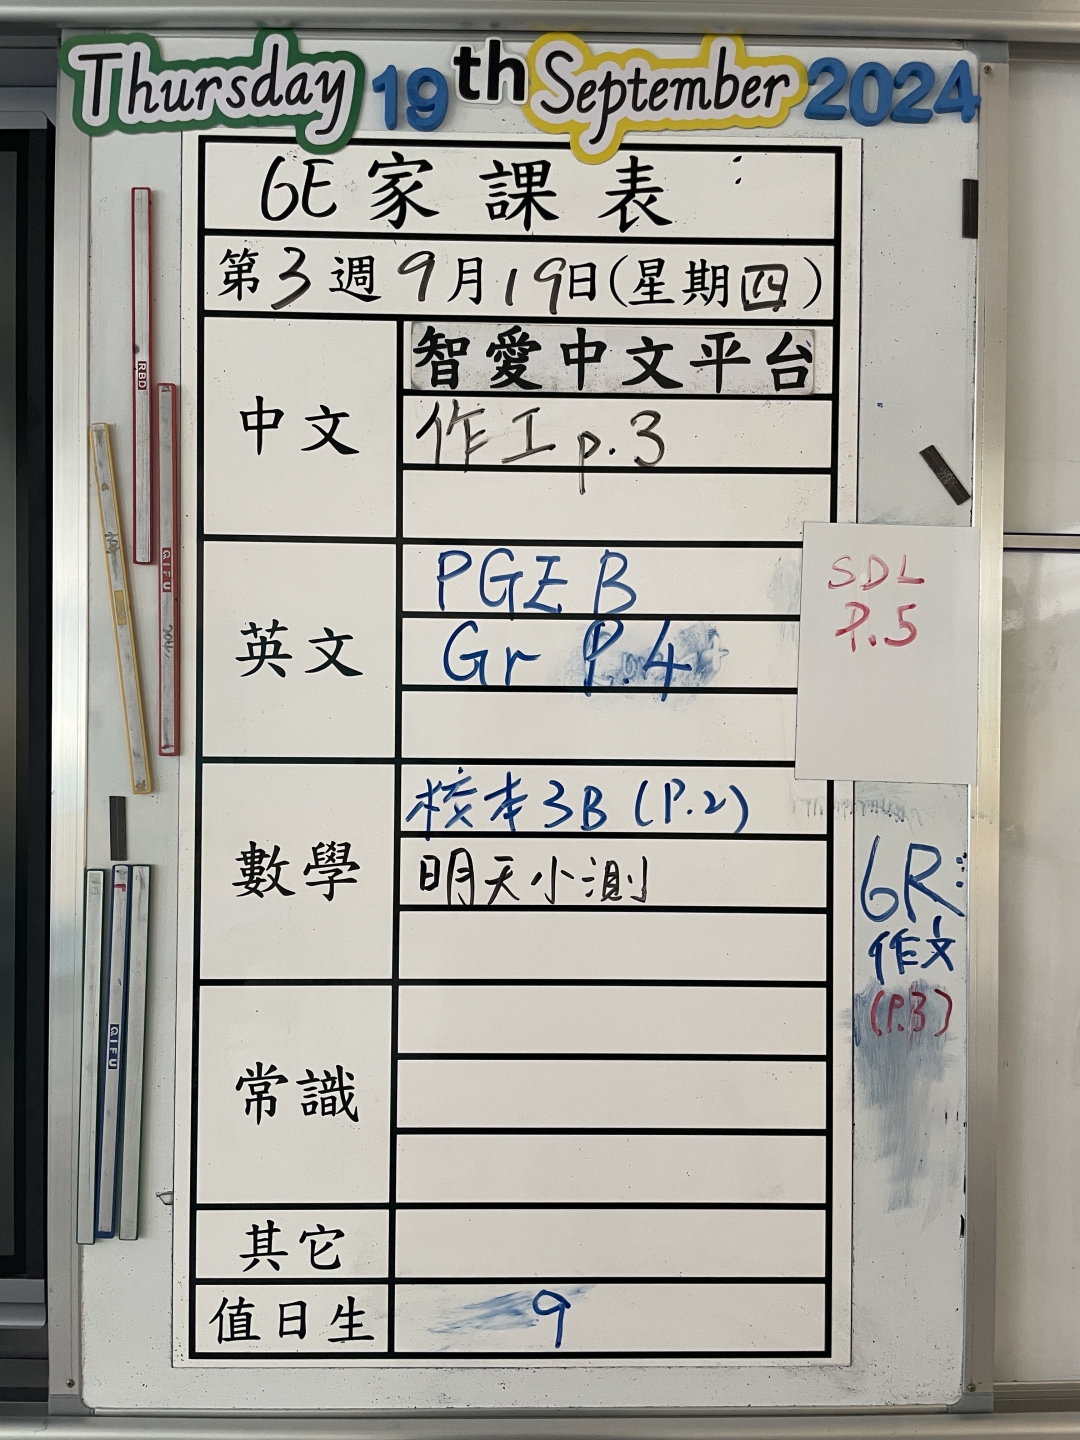 Thursday 19th September 2024
6E 家課表
第3週 9月19日(星期四)
中文
智愛中文平台
作工 p.3
英文
PGE B
Gr P.4
SDL
P.5
數學
校本3B (P.2)
明天小測
6R:
作文
(P.3)
常識
其它
值日生
9
RBD
QIFU
QIFU